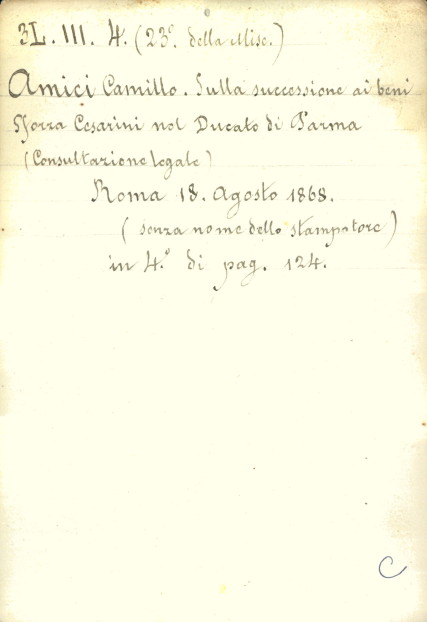 3L. III. 4. (23º. della Misc.)
Amici Camillo. Sulla successione ai beni
Sforza Cesarini nel Ducato di Parma
(Consultazione legale)
Roma 18. Agosto 1868.
(senza nome dello stampatore)
in 4.º di pag. 124.
C